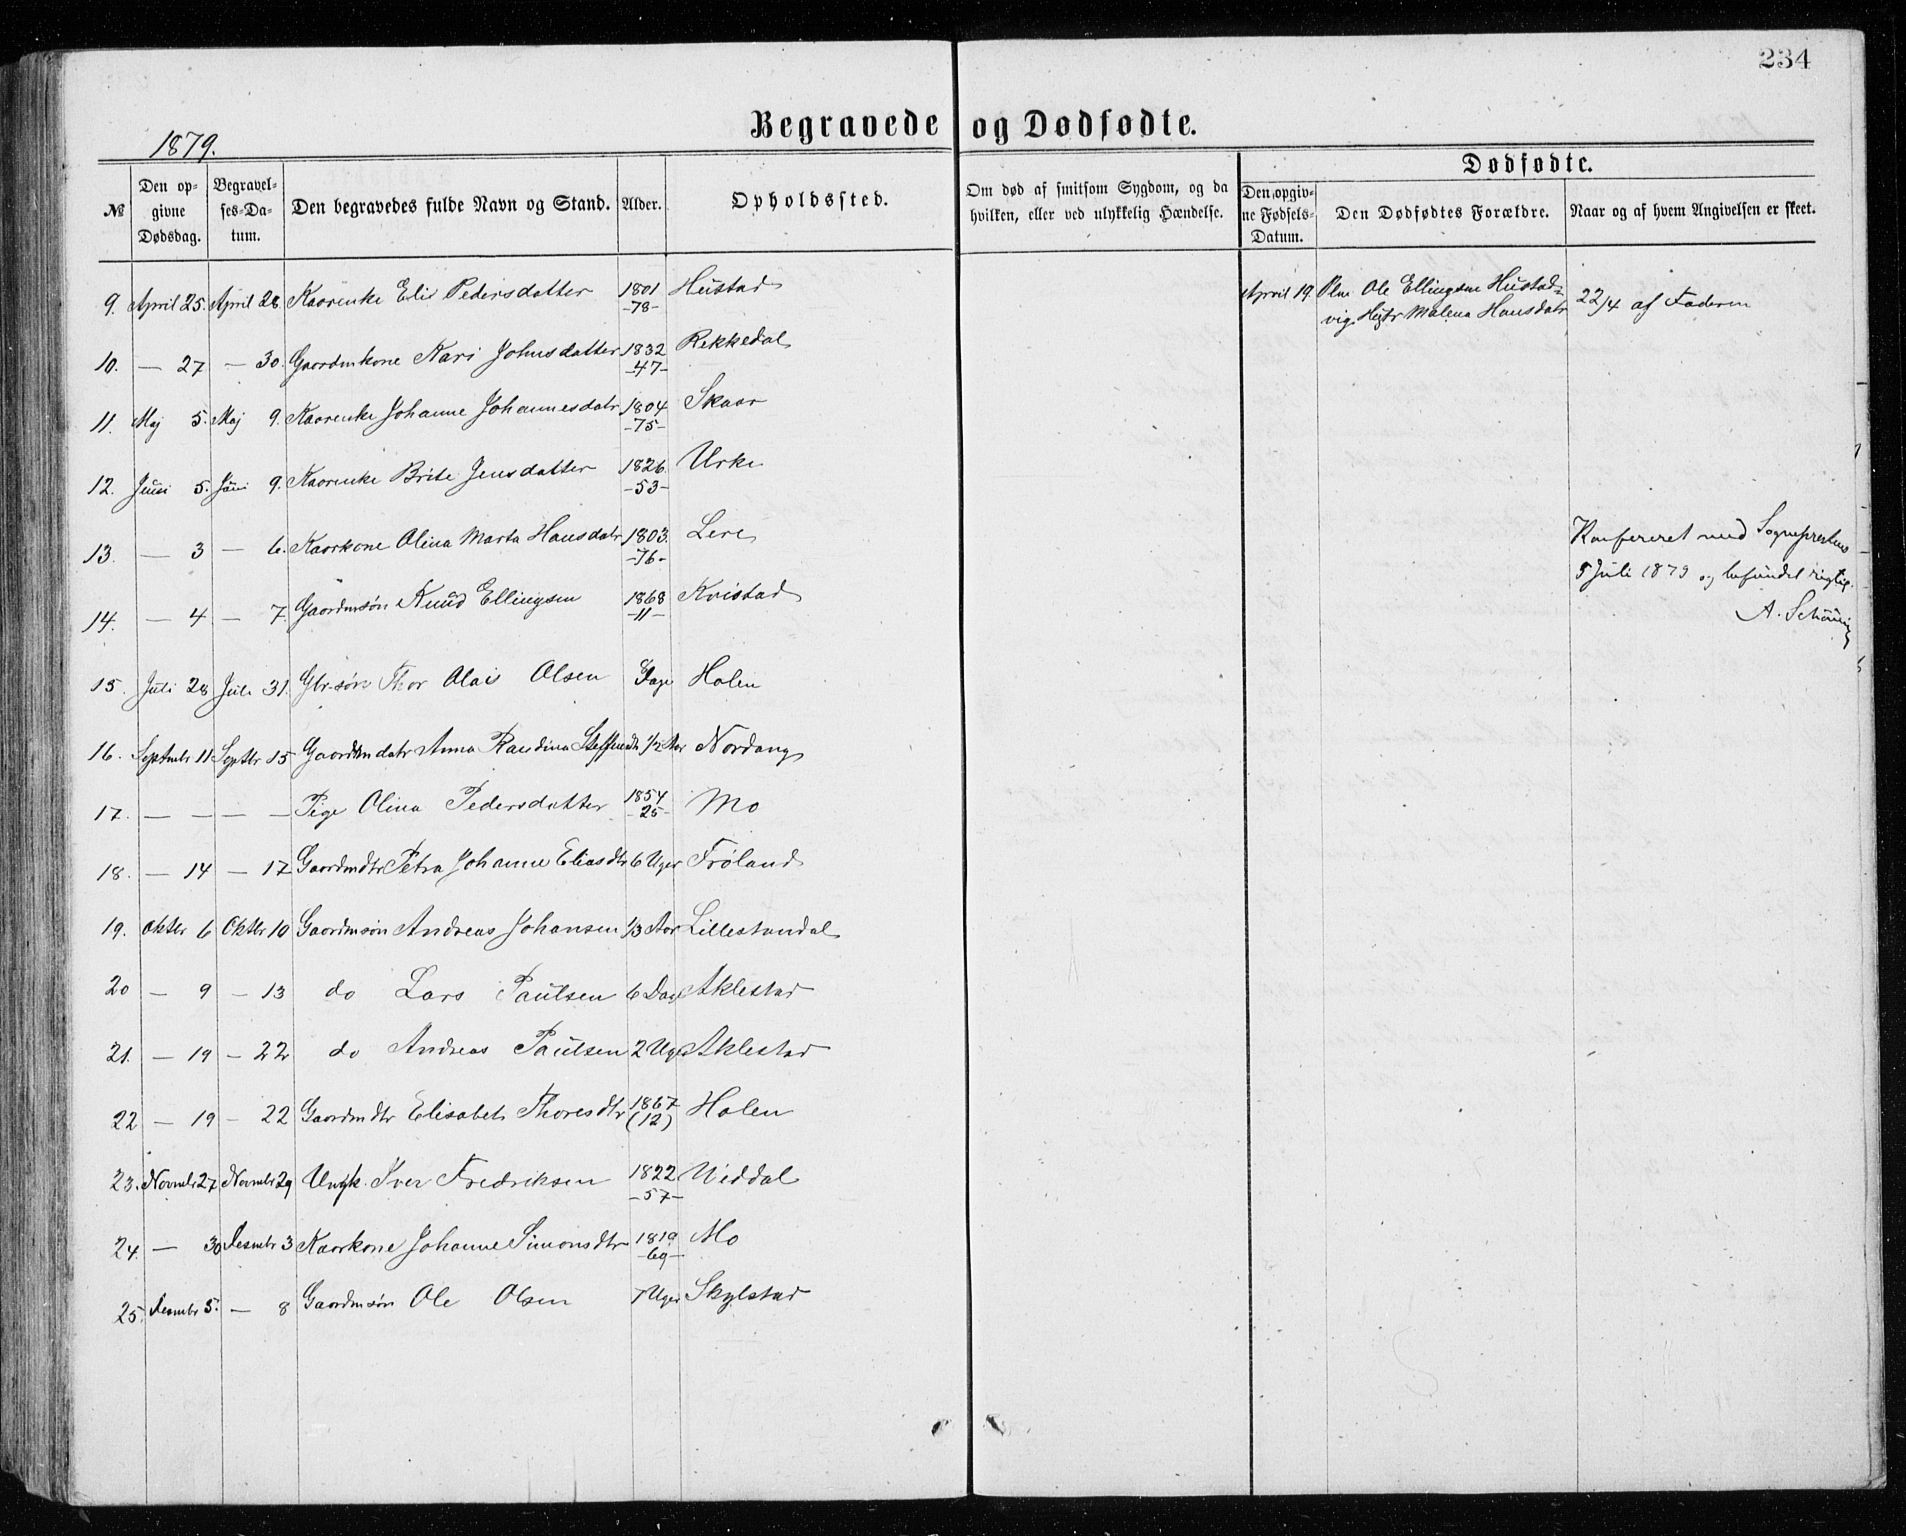 234
Begravede og Dødfødte.
1879.
Dødfødte.
№
Den op-
givne
Dødsdag.
Begravel-
ses-Da-
tum.
Den begravedes fulde Navn og Stand.
Alder.
Opholdssted.
Om død af smitsom Sygdom, og da
hvilken, eller ved ulykkelig Hændelse.
Den opgiv-
ne Fødsels-
Datum.
Den Dødfødtes Forældre.
Naar og af hvem Angivelsen er skeet.
9. April 25. April 28. Kaarenke Elie Pedersdatter 1801 -78- Hustad
April 19. Ole Ellingsen Hustad-
vig Malena Hansdatr 22/4 af Faderen
10. — 27 — 30. Gaardmkone Kari Johnsdatter 1832 -47- Rekkedal
11. Maj 5. Maj 9. Kaarenke Johanne Johannesdatr 1804 -75- Skaar
12. Juni 5. Juni 9. Kaarenke Brite Jensdatter 1826. -53- Urke
13. — 3 — 6. Kaarkone Olina Marta Hansdatr 1803. -76- Lere
Konfereret med Sogneprestens
5 Juli 1879 og befundet rigtig.
A. Schøning
14. — 4 — 7. Gaardmsøn Knud Ellingsen 1868 -11- Kvistad
15. Juli 28 Juli 31. Gbr.søn Thor Olai Olsen 8 Dage Holen
16. Septembr 11 Septbr 15 Gaardmdatr Anna Randina Steffensdtr 1/2 Aar Nordang
17. — — — — Pige Olina Pedersdatter 1854 -25- Mo
18. — 14 — 17 Gaardmdtr Petra Johanne Eliasdtr 6 Uger Frøland
19. Oktbr 6 Oktbr 10 Gaardmsøn Andreas Johansen 1/3 Aar Lillestandal
20 — 9 — 13 do Lars Paulsen 6 Dag Aklestad
21. — 19 — 22 do Andreas Paulsen 2 Uge Aklestad
22 — 19 — 22 Gaardmdtr Elisabet Thoresdtr 1867 (12) Holen
23. Novmbr 27 Novmbr 29 Ungk. Iver Fredriksen 1822 -57- Viddal
24. — 30 Desmbr 3 Kaarkone Johanne Simonsdtr 1819 -60- Mo
25. Desmbr 5. — 8 Gaardmsøn Ole Olsen 7 Uger Skylstad